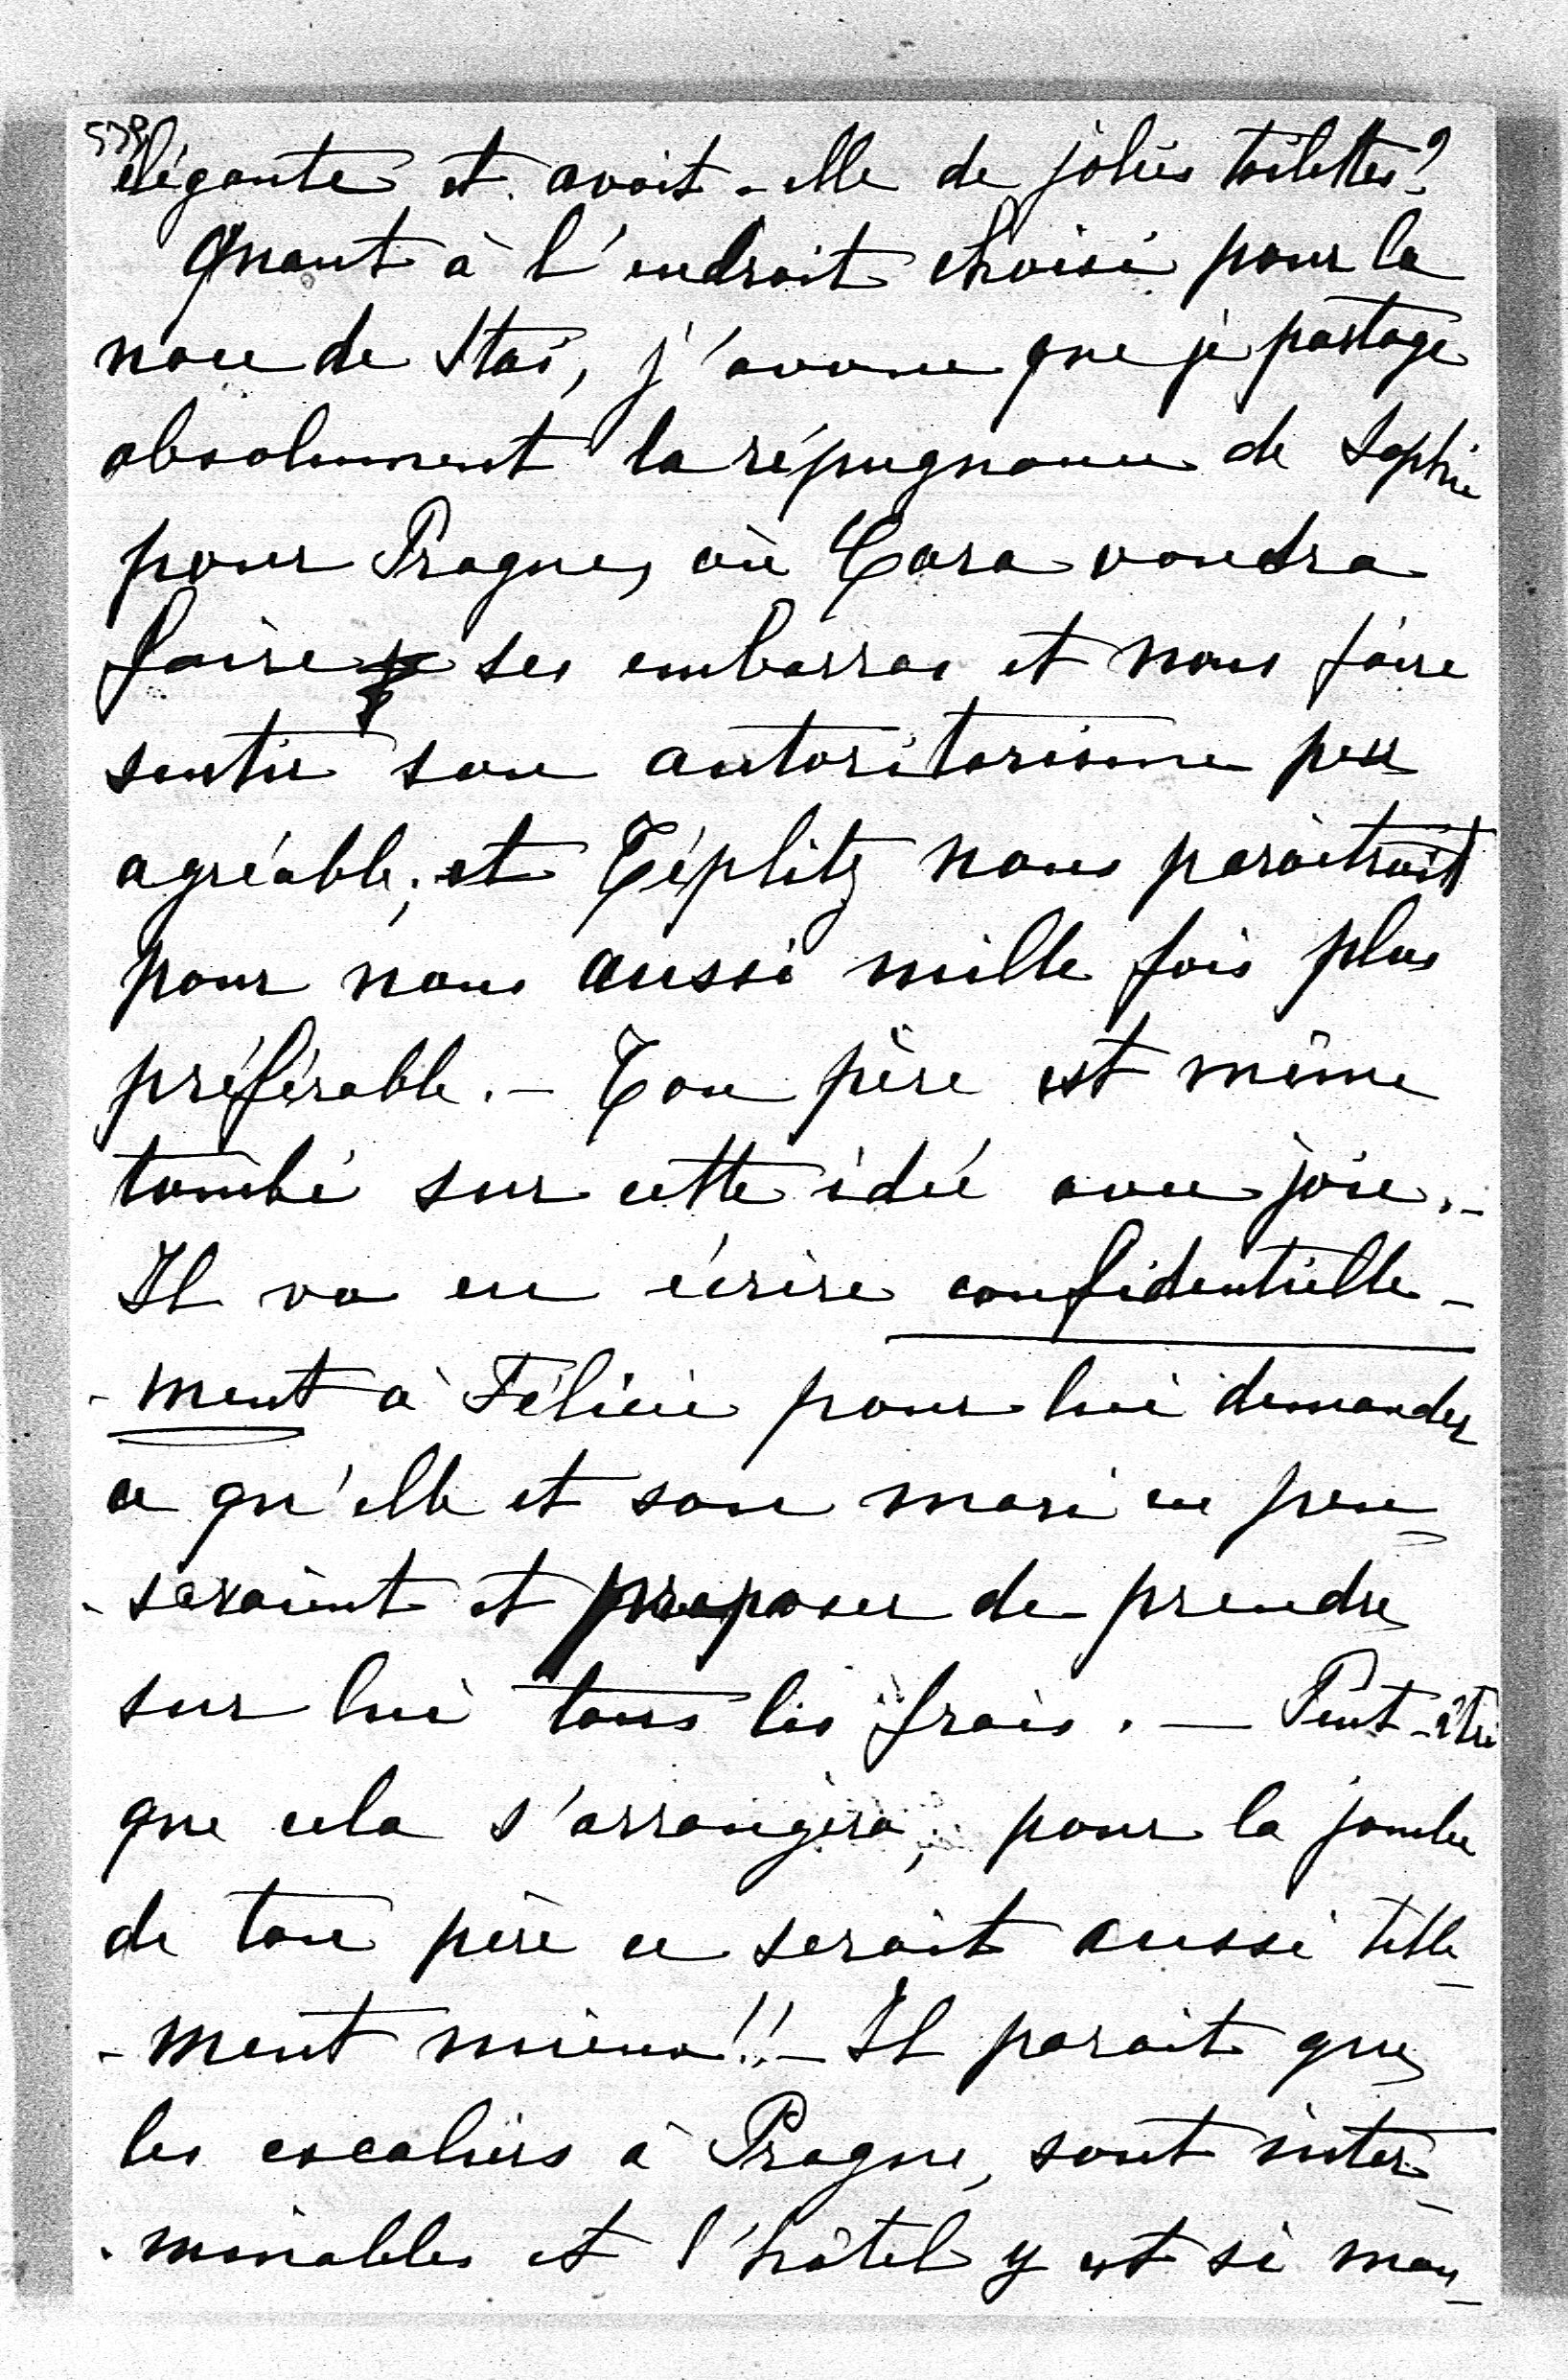 538
élégante et avait-elle de jolies toilettes?
Quant à l'endroit choisi pour la
noce de Stasi, j'avoue que je partage
absolument la répugnance de Sophie
pour Prague, où Cara voudra
faire ses embarras et nous faire
sentir son autoritarisme peu
agréable; et Téplitz nous paraîtrait
pour nous aussi mille fois plus
préférable. - Ton père est même
tombé sur cette idée avec joie. -
Il va en écrire confidentielle-
-ment à Félicie pour lui demander
ce qu'elle et son mari en pen-
-seraient et proposer de prendre
sur lui tous les frais. - Peut-être
que cela s'arrangera; pour la jambe
de ton père ce serait aussi telle-
-ment mieux!! - Il parait que
les escaliers à Prague, sont inter-
-minables et l'hôtel y est si mau-